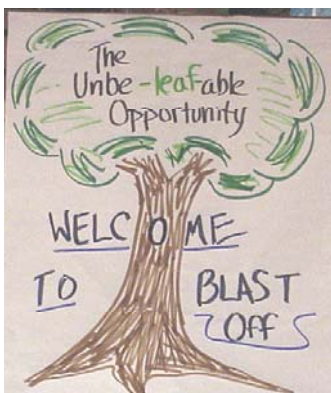 The
Unbe-leaf-able
Opportunity
WELCOME
TO BLAST
OFF